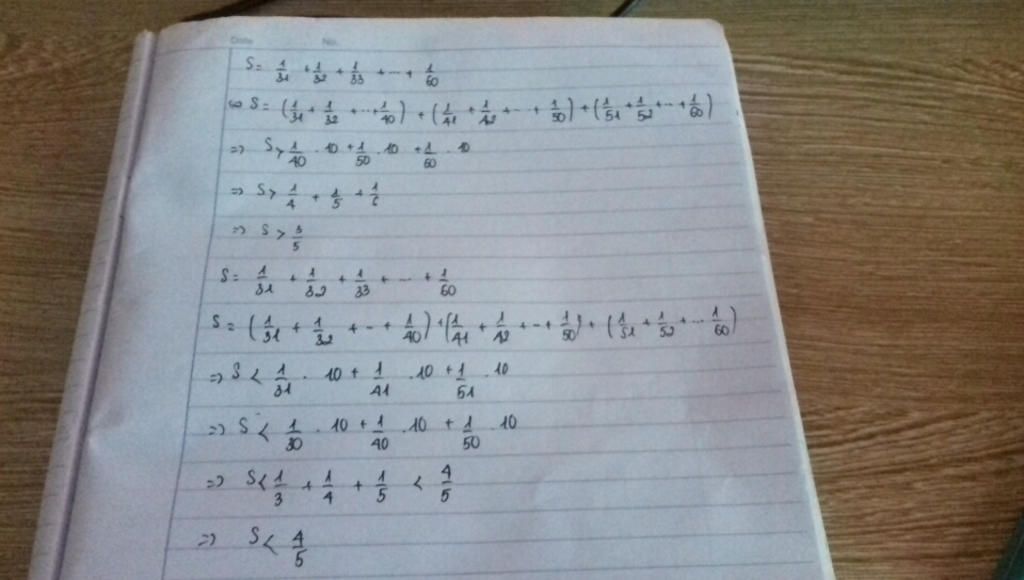 Date No.
S = 1/31 + 1/32 + 1/33 + ... + 1/60
⇔ S = (1/31 + 1/32 + ... + 1/40) + (1/41 + 1/42 + ... + 1/50) + (1/51 + 1/52 + ... + 1/60)
=> S > 1/40 . 10 + 1/50 . 10 + 1/60 . 10
=> S > 1/4 + 1/5 + 1/6
=> S > 3/5
S = 1/31 + 1/32 + 1/33 + ... + 1/60
S = (1/31 + 1/32 + ... + 1/40) + (1/41 + 1/42 + ... + 1/50) + (1/51 + 1/52 + ... 1/60)
=> S < 1/31 . 10 + 1/41 . 10 + 1/51 . 10
=> S < 1/30 . 10 + 1/40 . 10 + 1/50 . 10
=> S < 1/3 + 1/4 + 1/5 < 4/5
=> S < 4/5